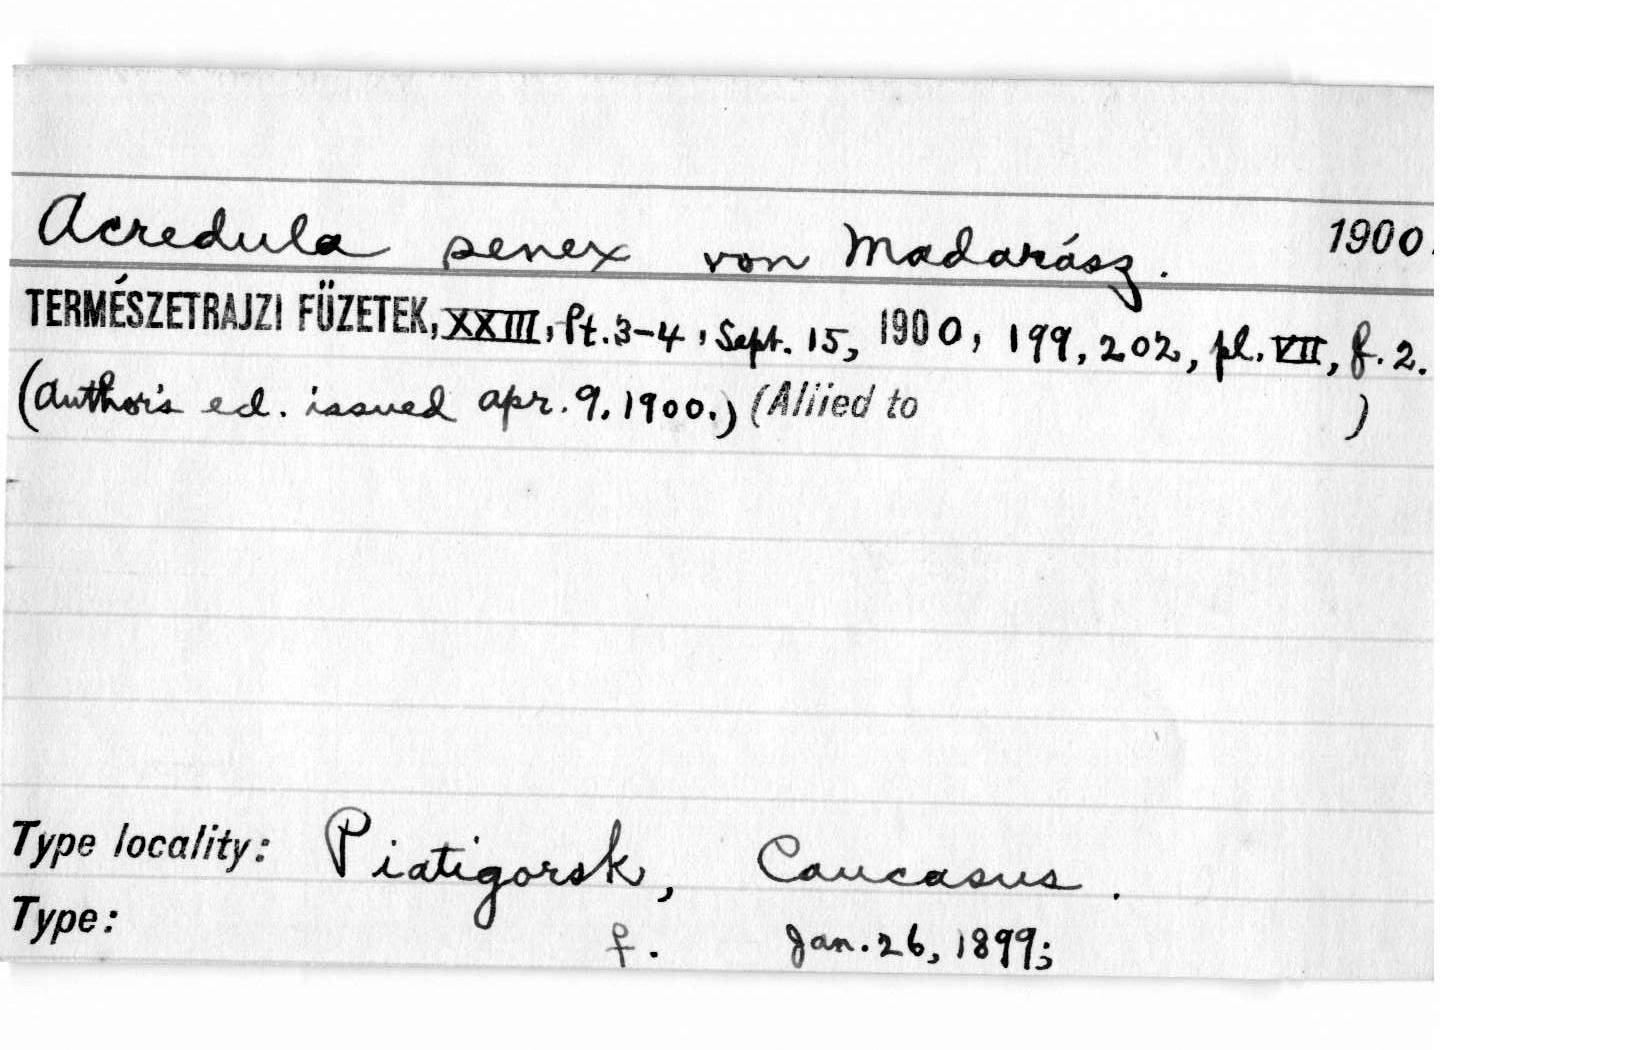 Acredula senex von Madarász. 1900.
TERMÉSZETRAJZI FÜZETEK, XXIII, Pt. 3-4, Sept. 15, 1900, 199, 202, pl. VII, f. 2.
(Author's ed. issued Apr. 9, 1900.) (Allied to )
Type locality: Piatigorsk, Caucasus.
Type: f. Jan. 26, 1899;